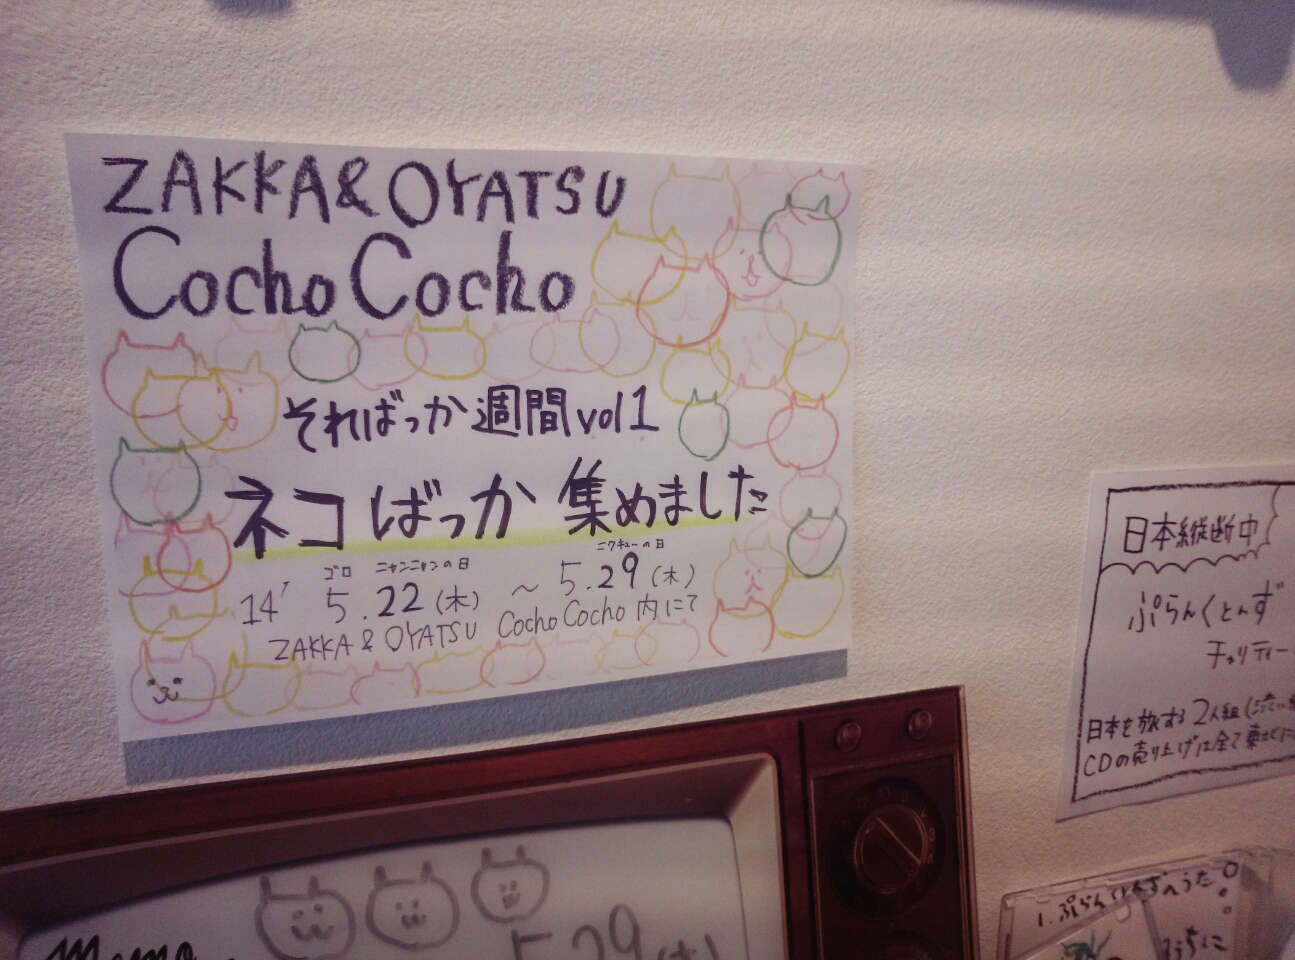 ZAKKA & OYATSU
Cocho Cocho
そればっか週間 vol 1
ネコばっか 集めました
ゴロ ニャンニャンの日 ニクキューの日
14' 5.22(木) 〜 5.29(木)
ZAKKA & OYATSU CochoCocho 内にて
日本縦断中
ぷらんくとんず
チャリティー
日本を旅する2人組
CDの売り上げは全て
1.ぷらんくとんずのうた
memo
5.29(木)